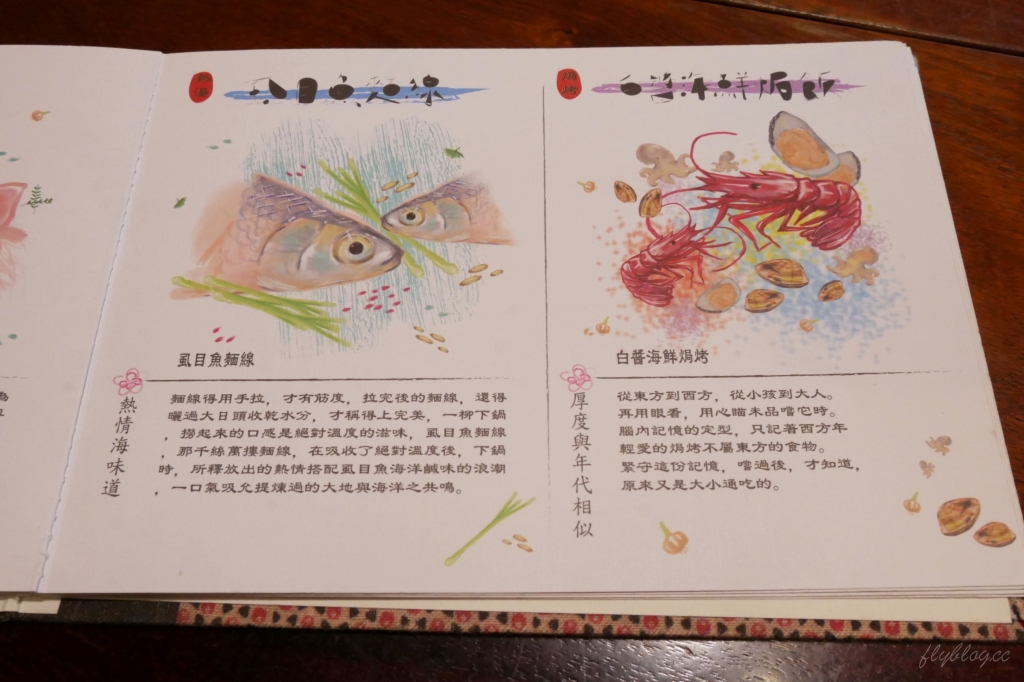 虱目魚麵線
虱目魚麵線
熱情海味道
麵線得用手拉，才有筋度，拉完後的麵線，還得
曬過大日頭收乾水分，才稱得上完美，一柳下鍋
，撈起來的口感是絕對溫度的滋味，虱目魚麵線
，那千絲萬摟麵線，在吸收了絕對溫度後，下鍋
時，所釋放出的熱情搭配虱目魚海洋鹹味的浪潮
，一口氣吸允提煉過的大地與海洋之共鳴。
焗烤
白醬海鮮焗飯
白醬海鮮焗烤
厚度與年代相似
從東方到西方，從小孩到大人。
再用眼看，用心瞄未品嚐它時。
腦內記憶的定型，只記著西方年
輕愛的焗烤不屬東方的食物。
緊守這份記憶，嚐過後，才知道，
原來又是大小通吃的。
flyblog.cc